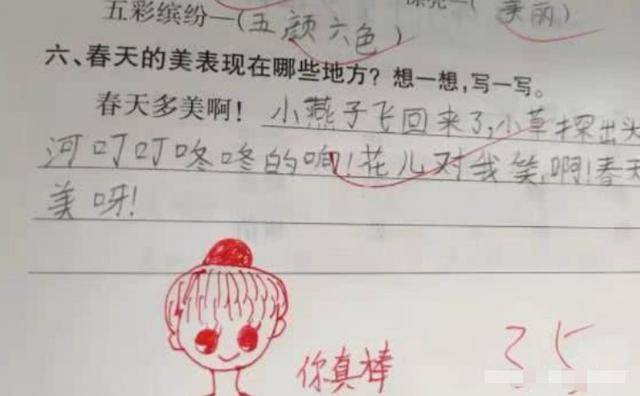 五彩缤纷—(五颜六色) 漂亮—(美丽)
六、春天的美表现在哪些地方？想一想，写一写。
春天多美啊！小燕子飞回来了,小草探出头
河叮叮咚咚的响!花儿对我笑,啊!春天
美呀!
你真棒 35